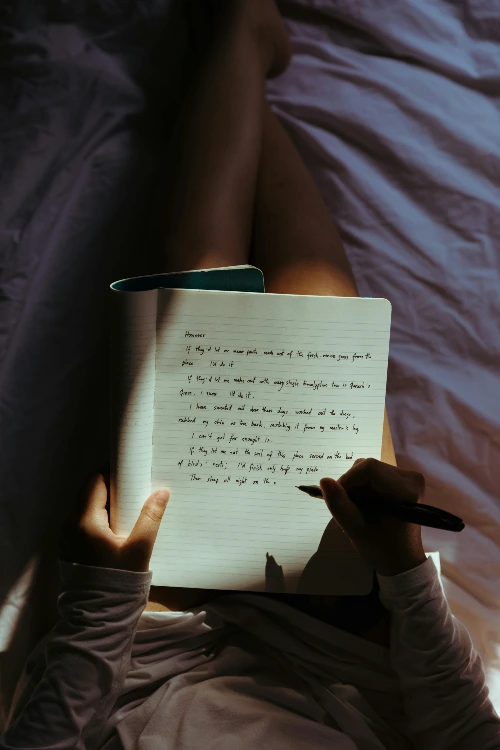 However
If they'd let me wear pants made out of the fresh green grass from the
place I'd do it.
If they'd let me make out with every single Eucalyptus tree in
I swear I'd do it.
I have sweated out dew these days, worked out the dregs,
rubbed my chin on the bark, scratching it from my master's leg
I can't get far enough in.
If they let me eat the soil of this place served on the bed
of birds' nests; I'd finish only half my plate
Then sleep all night on the